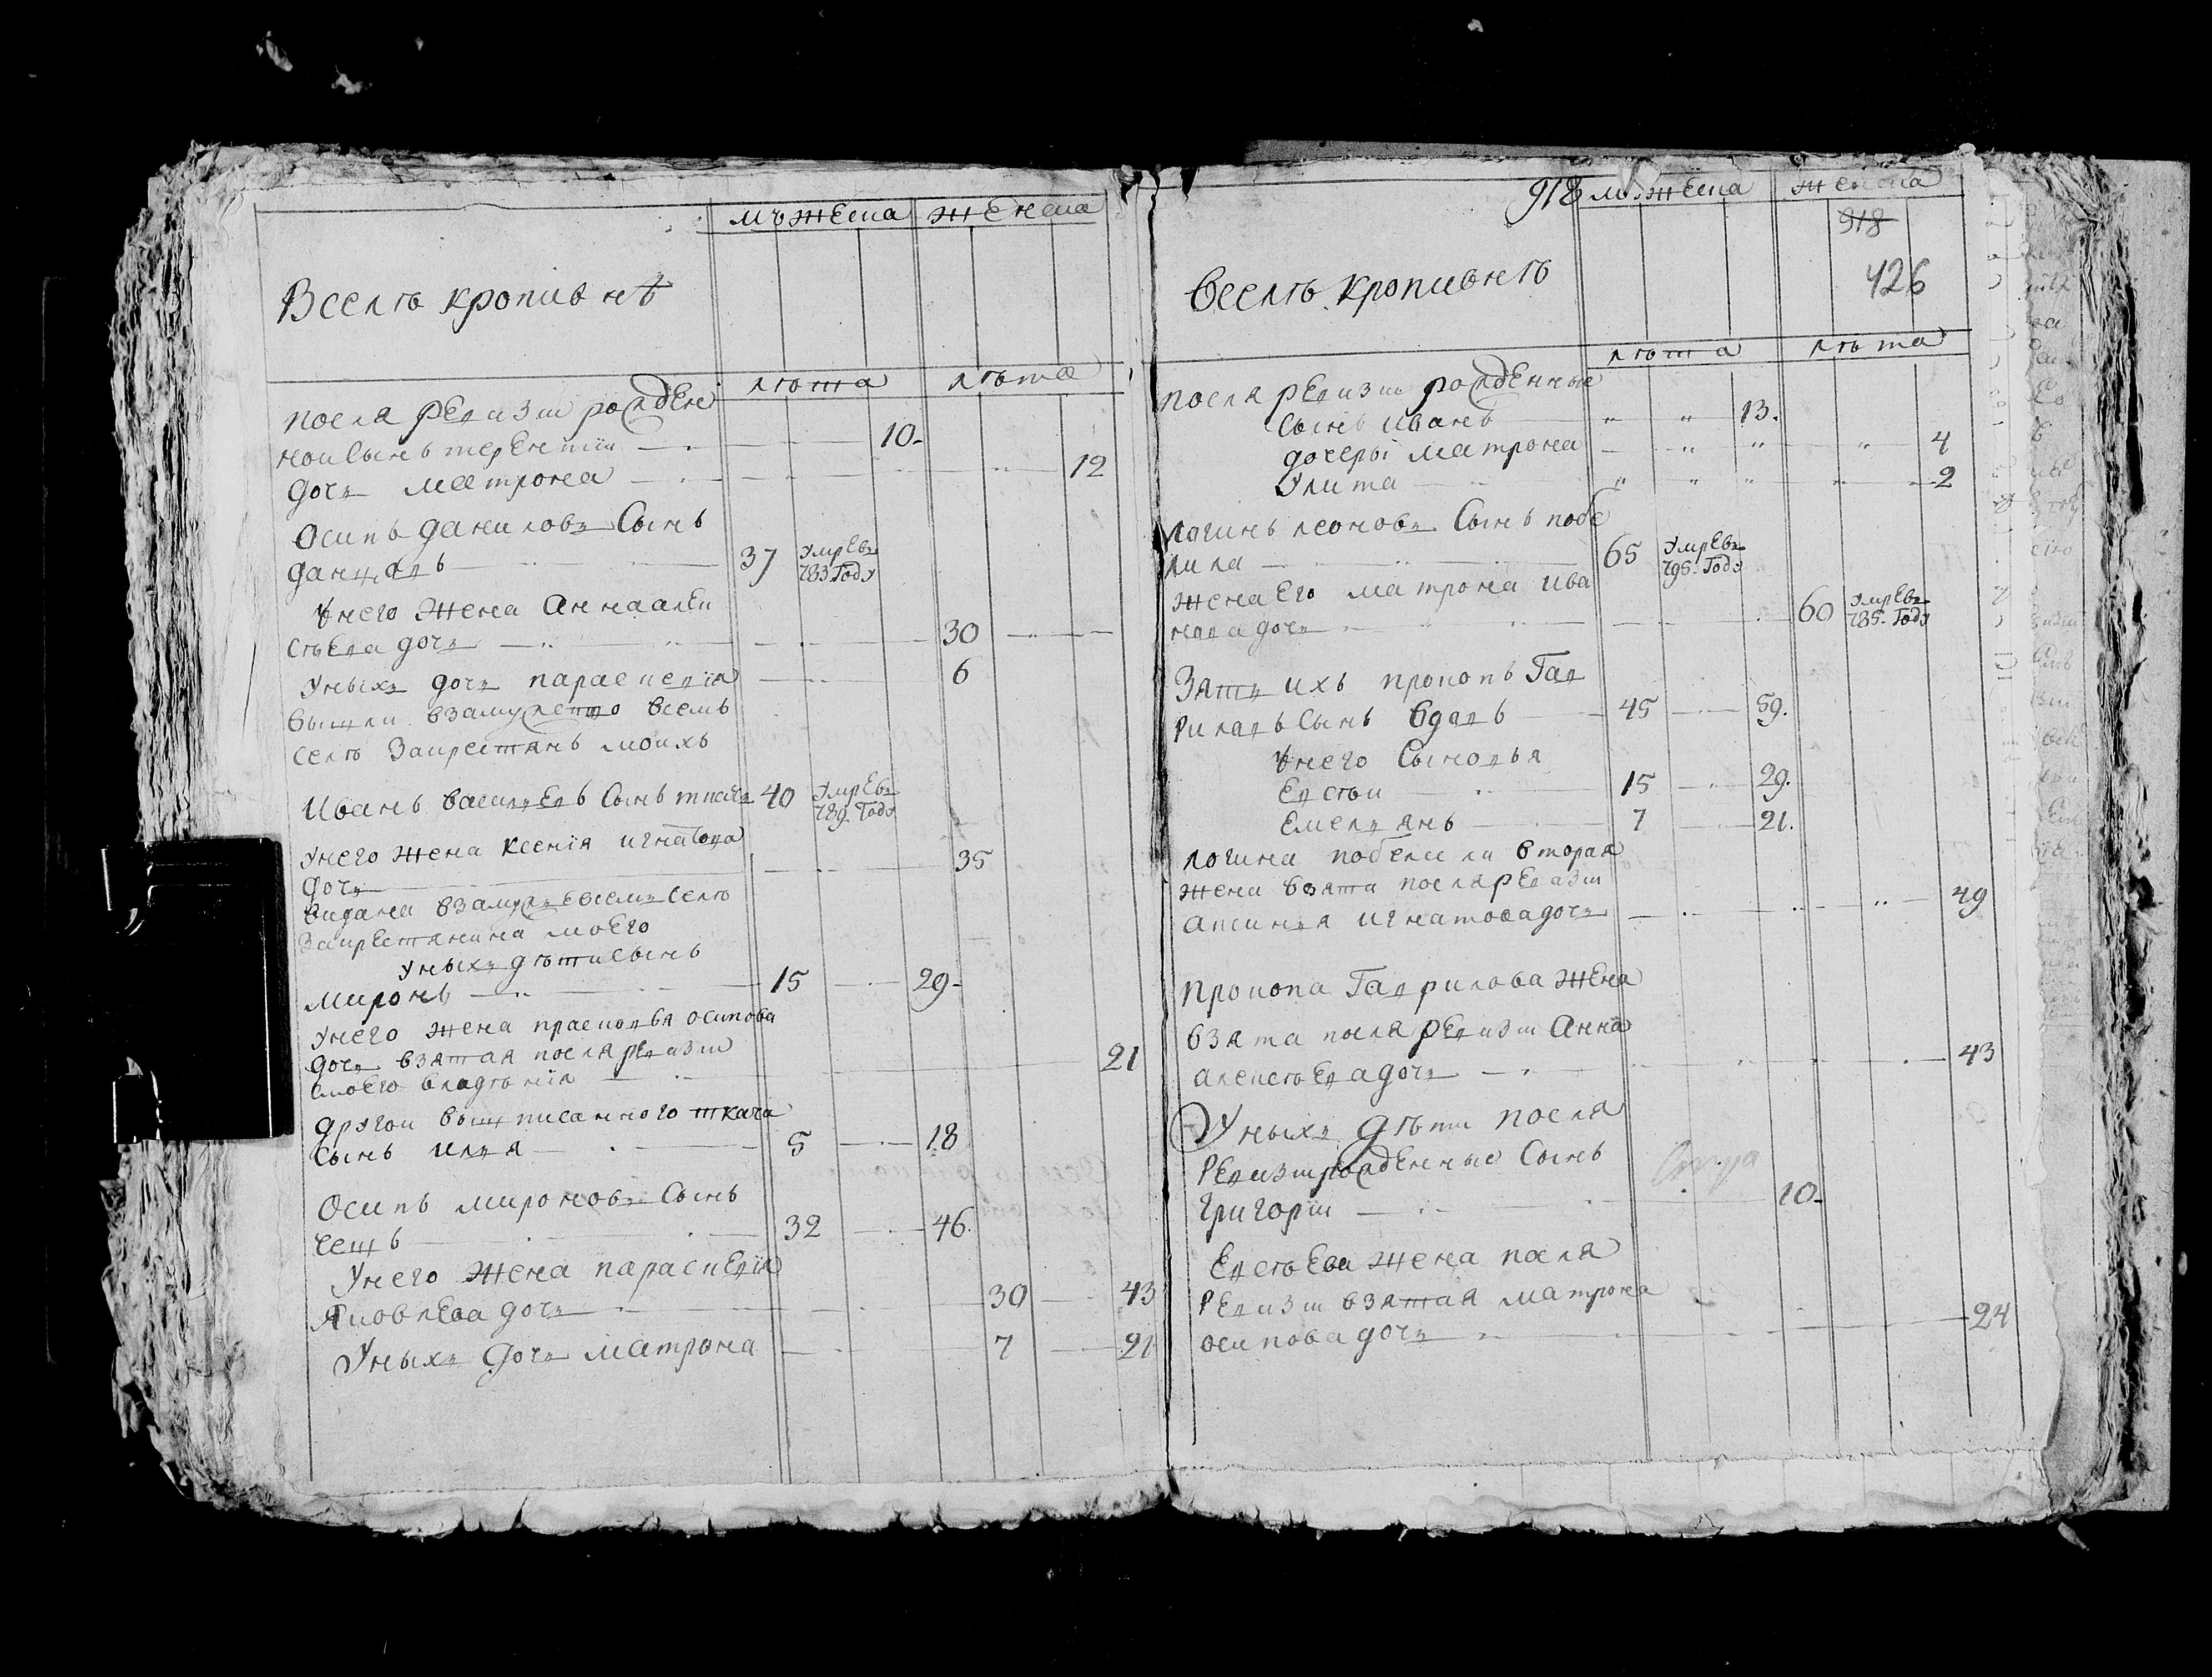 мъжеска женска
Вселѣ кропивнѣ
лѣта лѣта
послѧ ревизїи рожден
нои сынъ терентїи 10
дочъ матрона 12
Осипъ даниловъ сынъ
37 умревъ 783 Году
Унего жена анна алек
сѣева дочъ 30
Уныхъ дочъ параскевїя 6
вышли взамужетво всемъ
селѣ закрестянъ моихъ
Иванъ василевъ сынъ ткачъ 40 умревъ 789 Году
Унего жена ксенїя игнатова
дочъ 35
видана взамужъ всемъ селѣ
закрестянина моего
Уныхъ дѣти сынъ
миронъ 15 29
Унего жена прасковья осипова
дочъ взятая послѧ ревизїи
смоего владѣнїя 21
другои вышписанного ткача
сынъ илья 5 18
Осипъ мироновъ сынъ
32 46
Унего жена параскевїя
Яковлева дочъ 30 43
Уныхъ дочъ матрона 7 21
918 мъжеска женска
918
Вселѣ кропивнѣ 426
лѣта лѣта
послѧ ревизїи рожденные
сынъ иванъ 13
дочеры матрона 4
Улита 2
логинъ леоновъ сынъ побе
65 умревъ 795 Году
жена его матрона ива
нова дочъ 60 умревъ 785 Году
Зять ихъ прокопъ Гав
риловъ сынъ 45 59
Унего сыновья
Евсѣи 15 29
Емельянъ 7 21
логина вторая
жена взята послѧ ревизїи
аксинья игнатова дочъ 49
прокопа Гаврилова жена
взята послѧ ревизїи анна
алексѣева дочъ 43
Уныхъ дѣти послѧ
Ревизїи рожденные сынъ
григорїи 10
Евсѣева жена послѧ
Ревизїи взятая матрона
осипова дочъ 24